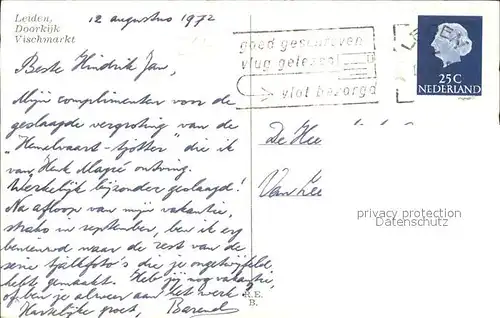 Leiden,
Doorkijk
Vischmarkt
12 augustus 1972
goed geschreven
vlug gelezen
vlot bezorgd
LEIDEN
25 C
NEDERLAND
Beste Hindrik Jan,
Mijn complimenten voor de
geslaagde vergroting van de
"Hemelvaart-tjotter" die ik
van Henk Magré ontving.
Werkelijk bijzonder geslaagd!
Na afloop van mijn vakantie,
straks in september, ben ik erg
benieuwd naar de rest van de
serie tjalkfoto's die je ongetwijfeld
hebt gemaakt. Heb jij nog vakantie,
of ben je alweer aan het werk
Hartelijke groet, Barend
De Heer
Van Zee
privacy protection
Datenschutz
R.E.
B.